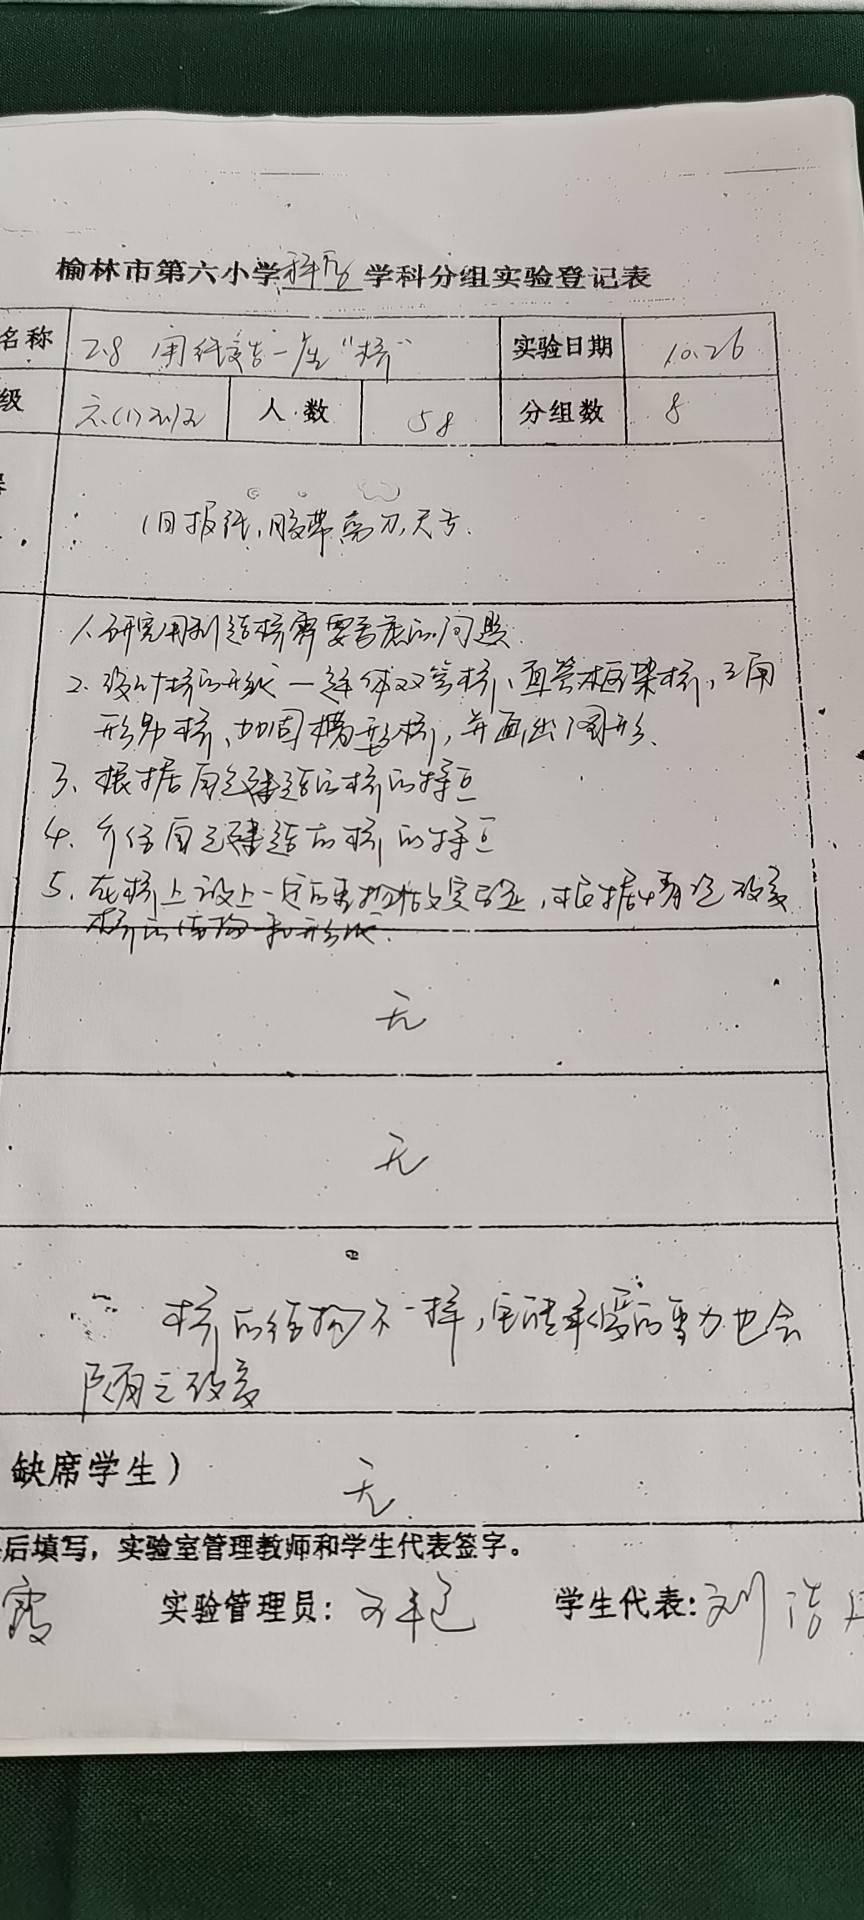 榆林市第六小学科学学科分组实验登记表
名称 2.8 用纸造一座“桥” 实验日期 10.26
级 六(1) 人数 58 分组数 8
旧报纸,胶带,剪刀,尺子.
1.研究用纸造桥需要考虑的问题.
2.设计桥的形状一 双管桥、直管框架桥,三角
形 桥、加固槽型桥,并画出图形.
3、根据自己建造的桥的特点
4、介绍自己建造的桥的特点
5、在桥上放上一定的重物 实验,根据情况改变
桥的结构和形状.
无
无
桥的结构不一样,它能承受的重力也会
随之改变
缺席学生) 无
后填写,实验室管理教师和学生代表签字。
霞 实验管理员: 学生代表:刘浩